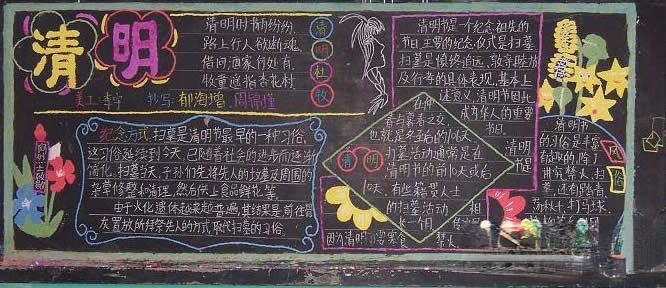 清明
清明时节雨纷纷
路上行人欲断魂
借问酒家何处有
牧童遥指杏花村
清明杜牧
美工:李宁 抄写:郁海增
纪念方式:扫墓是清明节最早的一种习俗,
这习俗延续到今天,已随着社会的进步而逐渐
简化。扫墓当天,子孙们先将先人的坟墓及周围的
杂草修整和清理,然后供上食品鲜花等。
由于火化遗体越来越普遍,其结果是前往骨
灰置放地拜祭先人的方式取代扫墓的习俗。
向烈士致敬
清明节是一个纪念祖先的
节日,主要的纪念仪式是扫墓
扫墓是慎终追远、敦亲睦族
及行孝的具体表现,基本上
述意义,清明节因此
成为华人的重要
节日。
清明
节是
在仲
春与暮春之交
也就是冬至后的106天
扫墓活动通常是在
清明节的前10天或后
10天。有些籍贯人士
的扫墓活动
清明
清明节
的习俗是丰富
有趣的,除了
讲究禁火、扫
墓,还有踏青
荡秋千、打马球
风俗
因为清明 寒食 禁火